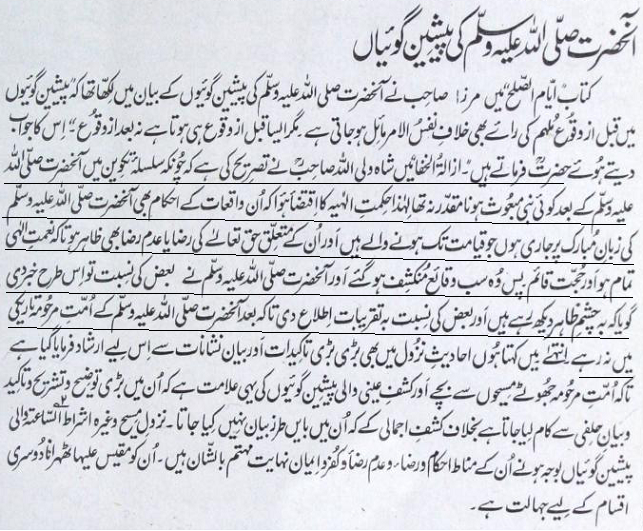 آنحضرت صلّی اللہ علیہ وسلّم کی پیشین گوئیاں
کتاب ایّام الصّلح میں مرزا صاحب نے آنحضرت صلی اللہ علیہ وسلّم کی پیشین گوئیوں کے بیان میں لکھا تھا کہ "پیشین گوئیوں
میں قبل از وقوع ملہم کی رائے بھی خلافِ نفسُ الامر مائل ہو جاتی ہے مگر ایسا قبل از وقوع ہی ہوتا ہے نہ بعد از وقوع"۔ اِس کا جواب
دیتے ہوئے حضرتؒ فرماتے ہیں۔ "ازالۃ الخفا میں شاہ ولی اللہ صاحبؒ نے تصریح کی ہے کہ چونکہ سلسلۂ تکوین میں آنحضرت صلّی اللہ
علیہ وسلّم کے بعد کوئی نبی مبعوث ہونا مقدّر نہ تھا لہٰذا حکمتِ الٰہیہ کا اقتضاء ہوا کہ اُن واقعات کے احکام بھی آنحضرت صلّی اللہ علیہ وسلّم
کی زبانِ مُبارک پر جاری ہوں جو قیامت تک ہونے والے ہیں اور اُن کے متعلّق حق تعالےٰ کی رضا یا عدم رضا بھی ظاہر ہو تاکہ نعمتِ الٰہی
تمام ہو اور حُجّت قائم پس وُہ سب وقائع مُنکشِف ہو گئے اور آنحضرت صلّی اللہ علیہ وسلّم نے بعض کی نسبت تو اِس طرح خبر دی
گویا کہ بہ چشمِ ظاہر دیکھ رہے ہیں اور بعض کی نسبت بہ تقریبات اِطلاع دی تاکہ بعد آنحضرت صلّی اللہ علیہ وسلّم کے اُمّتِ مرحُومہ تاریکی
میں نہ رہے انتہٰے میں کہتا ہُوں احادیثِ نزُول میں بھی بڑی بڑی تاکیدات اور بیان نشانات سے اِس لیے ارشاد فرمایا گیا ہے
تاکہ اُمّتِ مرحُومہ جھُوٹے مسیحوں سے بچے اور کشفِ عینی والی پیشین گوئیوں کی یہی علامت ہے کہ اُن میں بڑی توضیح و تشریح و تاکید
و بیانِ حلفی سے کام لیا جاتا ہے بخلاف کشفِ اجمالی کے کہ اُن میں بایں طرز بیان نہیں کیا جاتا۔ نزولِ مسیح وغیرہ اشراطُ السّاعۃ والی
پیشین گوئیاں بوجہ ہونے اُن کے مناطِ احکام و رضاء و عدم رضا و کفر و ایمان نہایت مہتم بالشّان ہیں۔ اُن کو مقیس علیہا ٹھہرانا دُوسری
اقسام کے لیے جہالت ہے۔